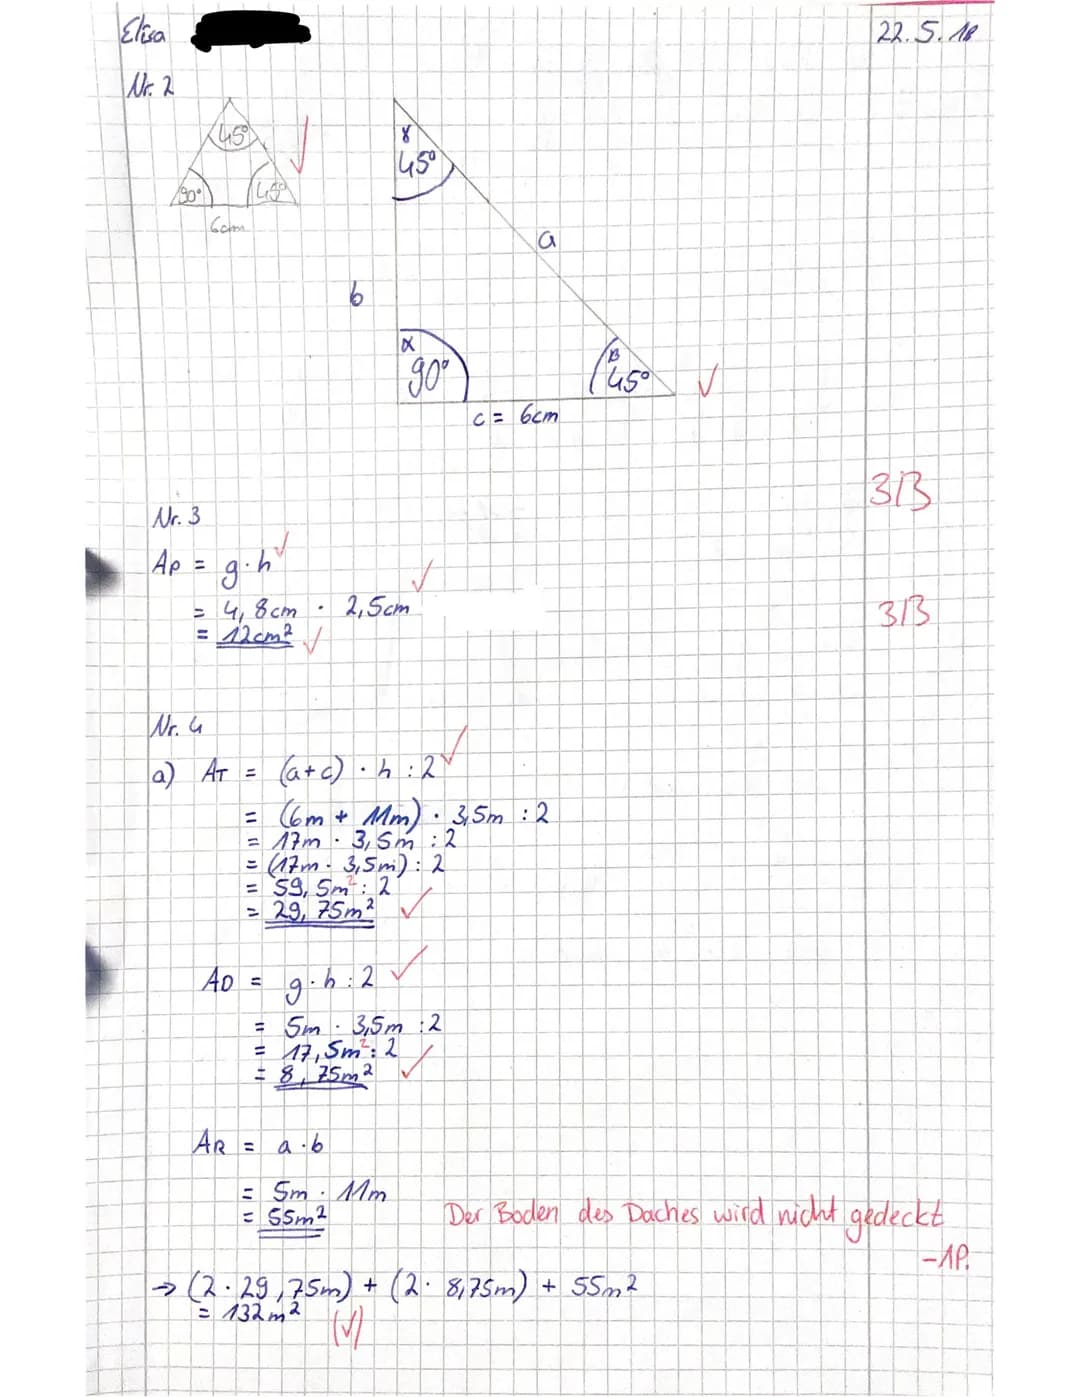 Elisa
22.5.18
Nr. 2
45°
90°
45°
6cm
γ
45°
a
b
α
90°
β
45°
c = 6cm
3/3
Nr. 3
AP = g·h
= 4,8cm · 2,5cm
= 12cm²
3/3
Nr. 4
a) AT = (a+c) · h : 2
= (6m + 11m) · 3,5m : 2
= 17m · 3,5m : 2
= (17m · 3,5m) : 2
= 59,5m² : 2
= 29,75m²
AD = g·h : 2
= 5m · 3,5m : 2
= 17,5m² : 2
= 8,75m²
AR = a·b
= 5m · 11m
= 55m²
Der Boden des Daches wird nicht gedeckt
-1P.
→ (2·29,75m) + (2·8,75m) + 55m²
= 132m²
(✓)